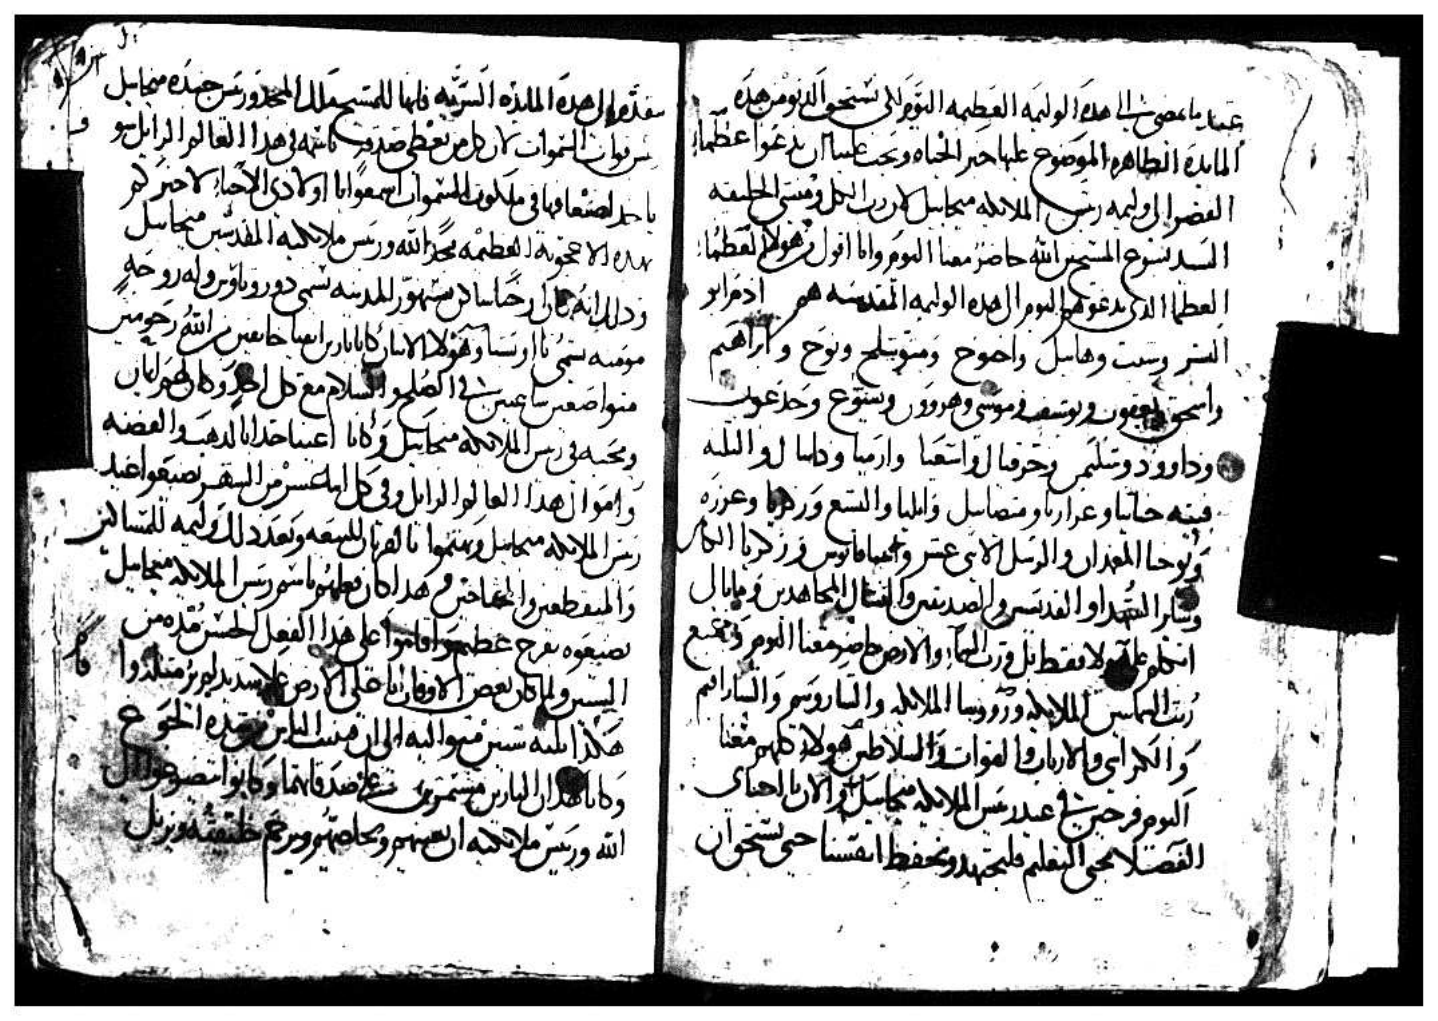 الى هذه الوليمه العظيمه اليوم لكى نستحق الدنو من هذه
المايده الطاهره الموضوع عليها خبز الحياه ويجب علينا ان ندعوا عظما
الى وليمه ريس الملايكه ميخاييل لان رب الكل ومنشى الخليقه
السيد يسوع المسيح ابن الله حاضر معنا اليوم وانا اقول من هولا العظما
العظما الذى ندعوهم اليوم الى هذه الوليمه المقدسه هم ادم ابو
البشر وشيت وهابيل واخنوخ ومتوشلح ونوح وابراهيم
واسحق ويعقوب ويوسف وموسى وهرون ويشوع وجدعون
وداوود وسليمن وحزقيال واشعيا وارميا ودانيال والثلثه
فتيه حنانيا وعزاريا وميصاييل وايليا واليسع وزكريا وعزره
ويوحنا المعمدان والرسل الاثنى عشر وزكريا الكاهن
وساير الشهدا والقديسين والصديقين المجاهدين ومابالى
اتكلم على هولا فقط بل ورب السما والارض حاضر معنا اليوم وجميع
رتب السماييين الملايكه وروسا الملايكه والشاروبيم والسارافيم
والكراسى والارباب والقوات والسلاطين هولا كلهم معنا
اليوم فرحين فى عيد ريس الملايكه ميخاييل الان يا احباى
الفضلا محبى التعليم فلنجتهد ونحفظ انفسنا حتى نستحق ان
الى هذه المايده السريه فانها للمسيح ملك المجد وريس جنده ميخاييل
السموات لان كل من يعطى صدقه باسمه فى هذا العالم الزايل هو
ياخد اضعافها فى ملكوت السموات اسمعوا يا اولادى الاحبا لاخبركم
بهذه الاعجوبه العظيمه لمجد الله وريس ملايكته المقدس ميخاييل
وذلك انه كان المدينه يسمى دوروتاوس وله زوجه
مومنه تسمى تااوبستا وهولا الاثنان كانا بارين خايفين من الله رحومين
متواضعين ساعيين فى الصلح والسلام مع كل احد وكان لهم ايمان
ومحبه فى ريس الملايكه ميخاييل وكانا اغنيا جدا بالذهب والفضه
واموال هذا العالم الزايل وفى كل اثنا عشر من الشهر يصنعوا عيد
ريس الملايكه ميخاييل ويهتموا بالقربان للبيعه وبعد ذلك وليمه للمساكين
والمنقطعين والمحتاجين هذا كان باسم ريس الملايكه ميخاييل
يصنعوه بفرح عظيم واقاموا على هذا الفعل الحسن مده من
السنين ولما كان بعض الاوقات على الارض غلا شديد
هكذا ثلثه سنين متواليه الى ان الناس من شده الجوع
وكانا هذان البارين مستمرين على صدقاتهما وكانوا يتضرعوا الى
الله وريس ملايكته ان يعينهم ويخلصهم ويرحم خليقته ويزيل